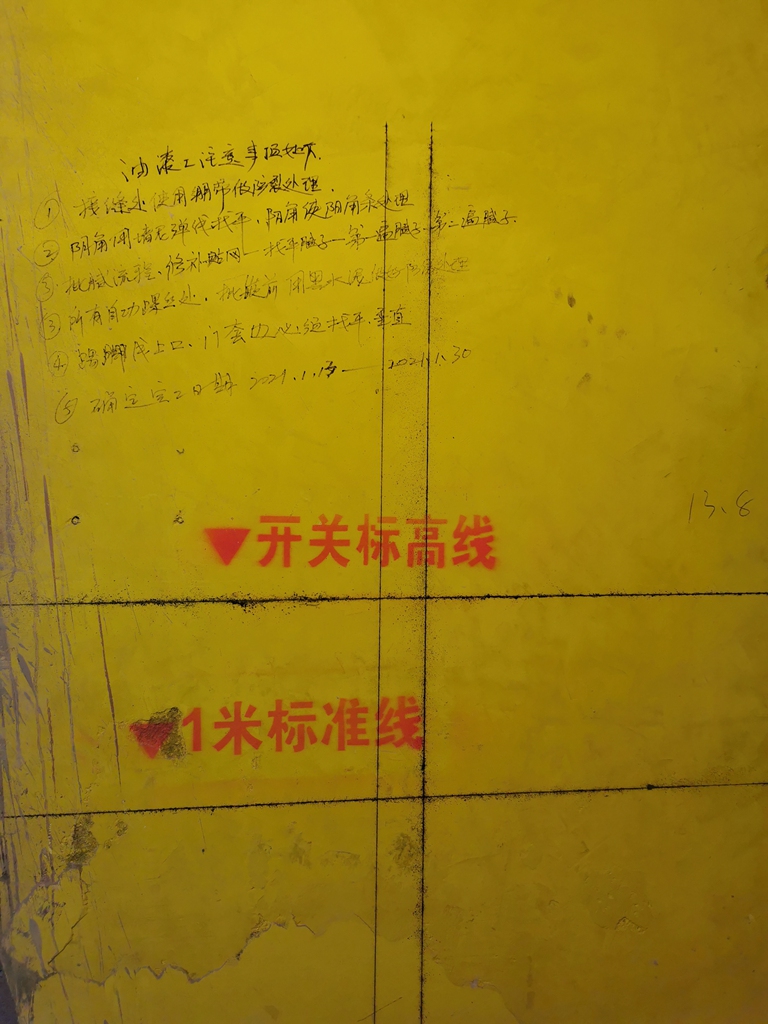 油漆工注意事项如下.
① 接缝处使用绷带做防裂处理.
② 阴角用墙无弹线找平, 阴角使阴角条处理
③ 批腻流程、修补贴网—找平腻子—第一遍腻子—第二遍腻子
③ 所有自功螺丝处, 批腻前用黑水泥做好防
④ 踢脚线上口、门套边必须找平、垂直
⑤ 确定完工日期 2021.1.15—2021.1.30
13.8
▼开关标高线
▼1米标准线